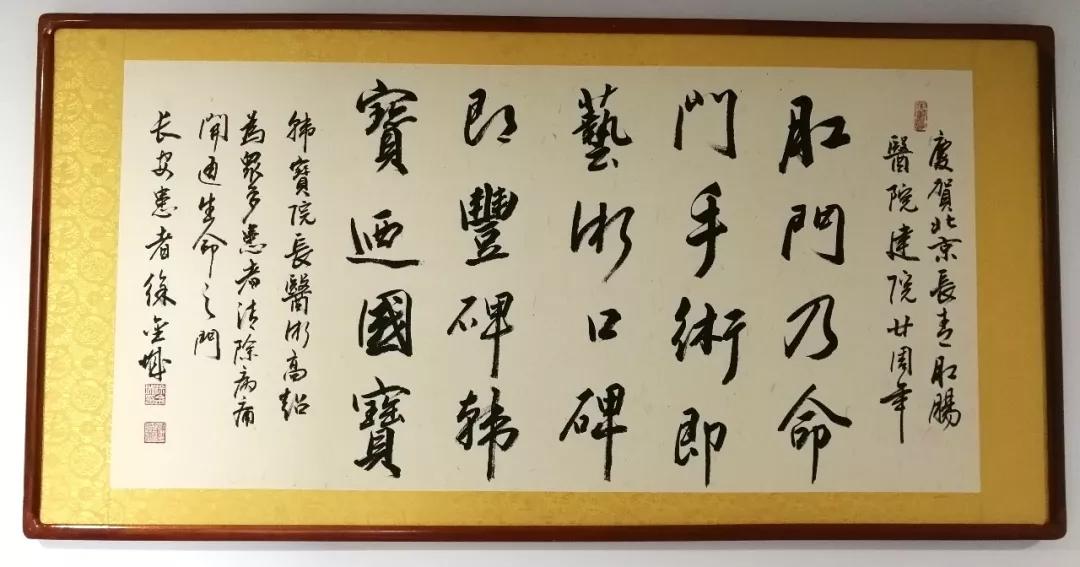 慶賀北京長青肛腸
醫院建院廿周年
肛門乃命
門手術即
藝術口碑
即豐碑韩
寶迺國寶
韩寶院長醫術高超
為眾多患者清除病痛
開通生命之門
长安患者徐金城